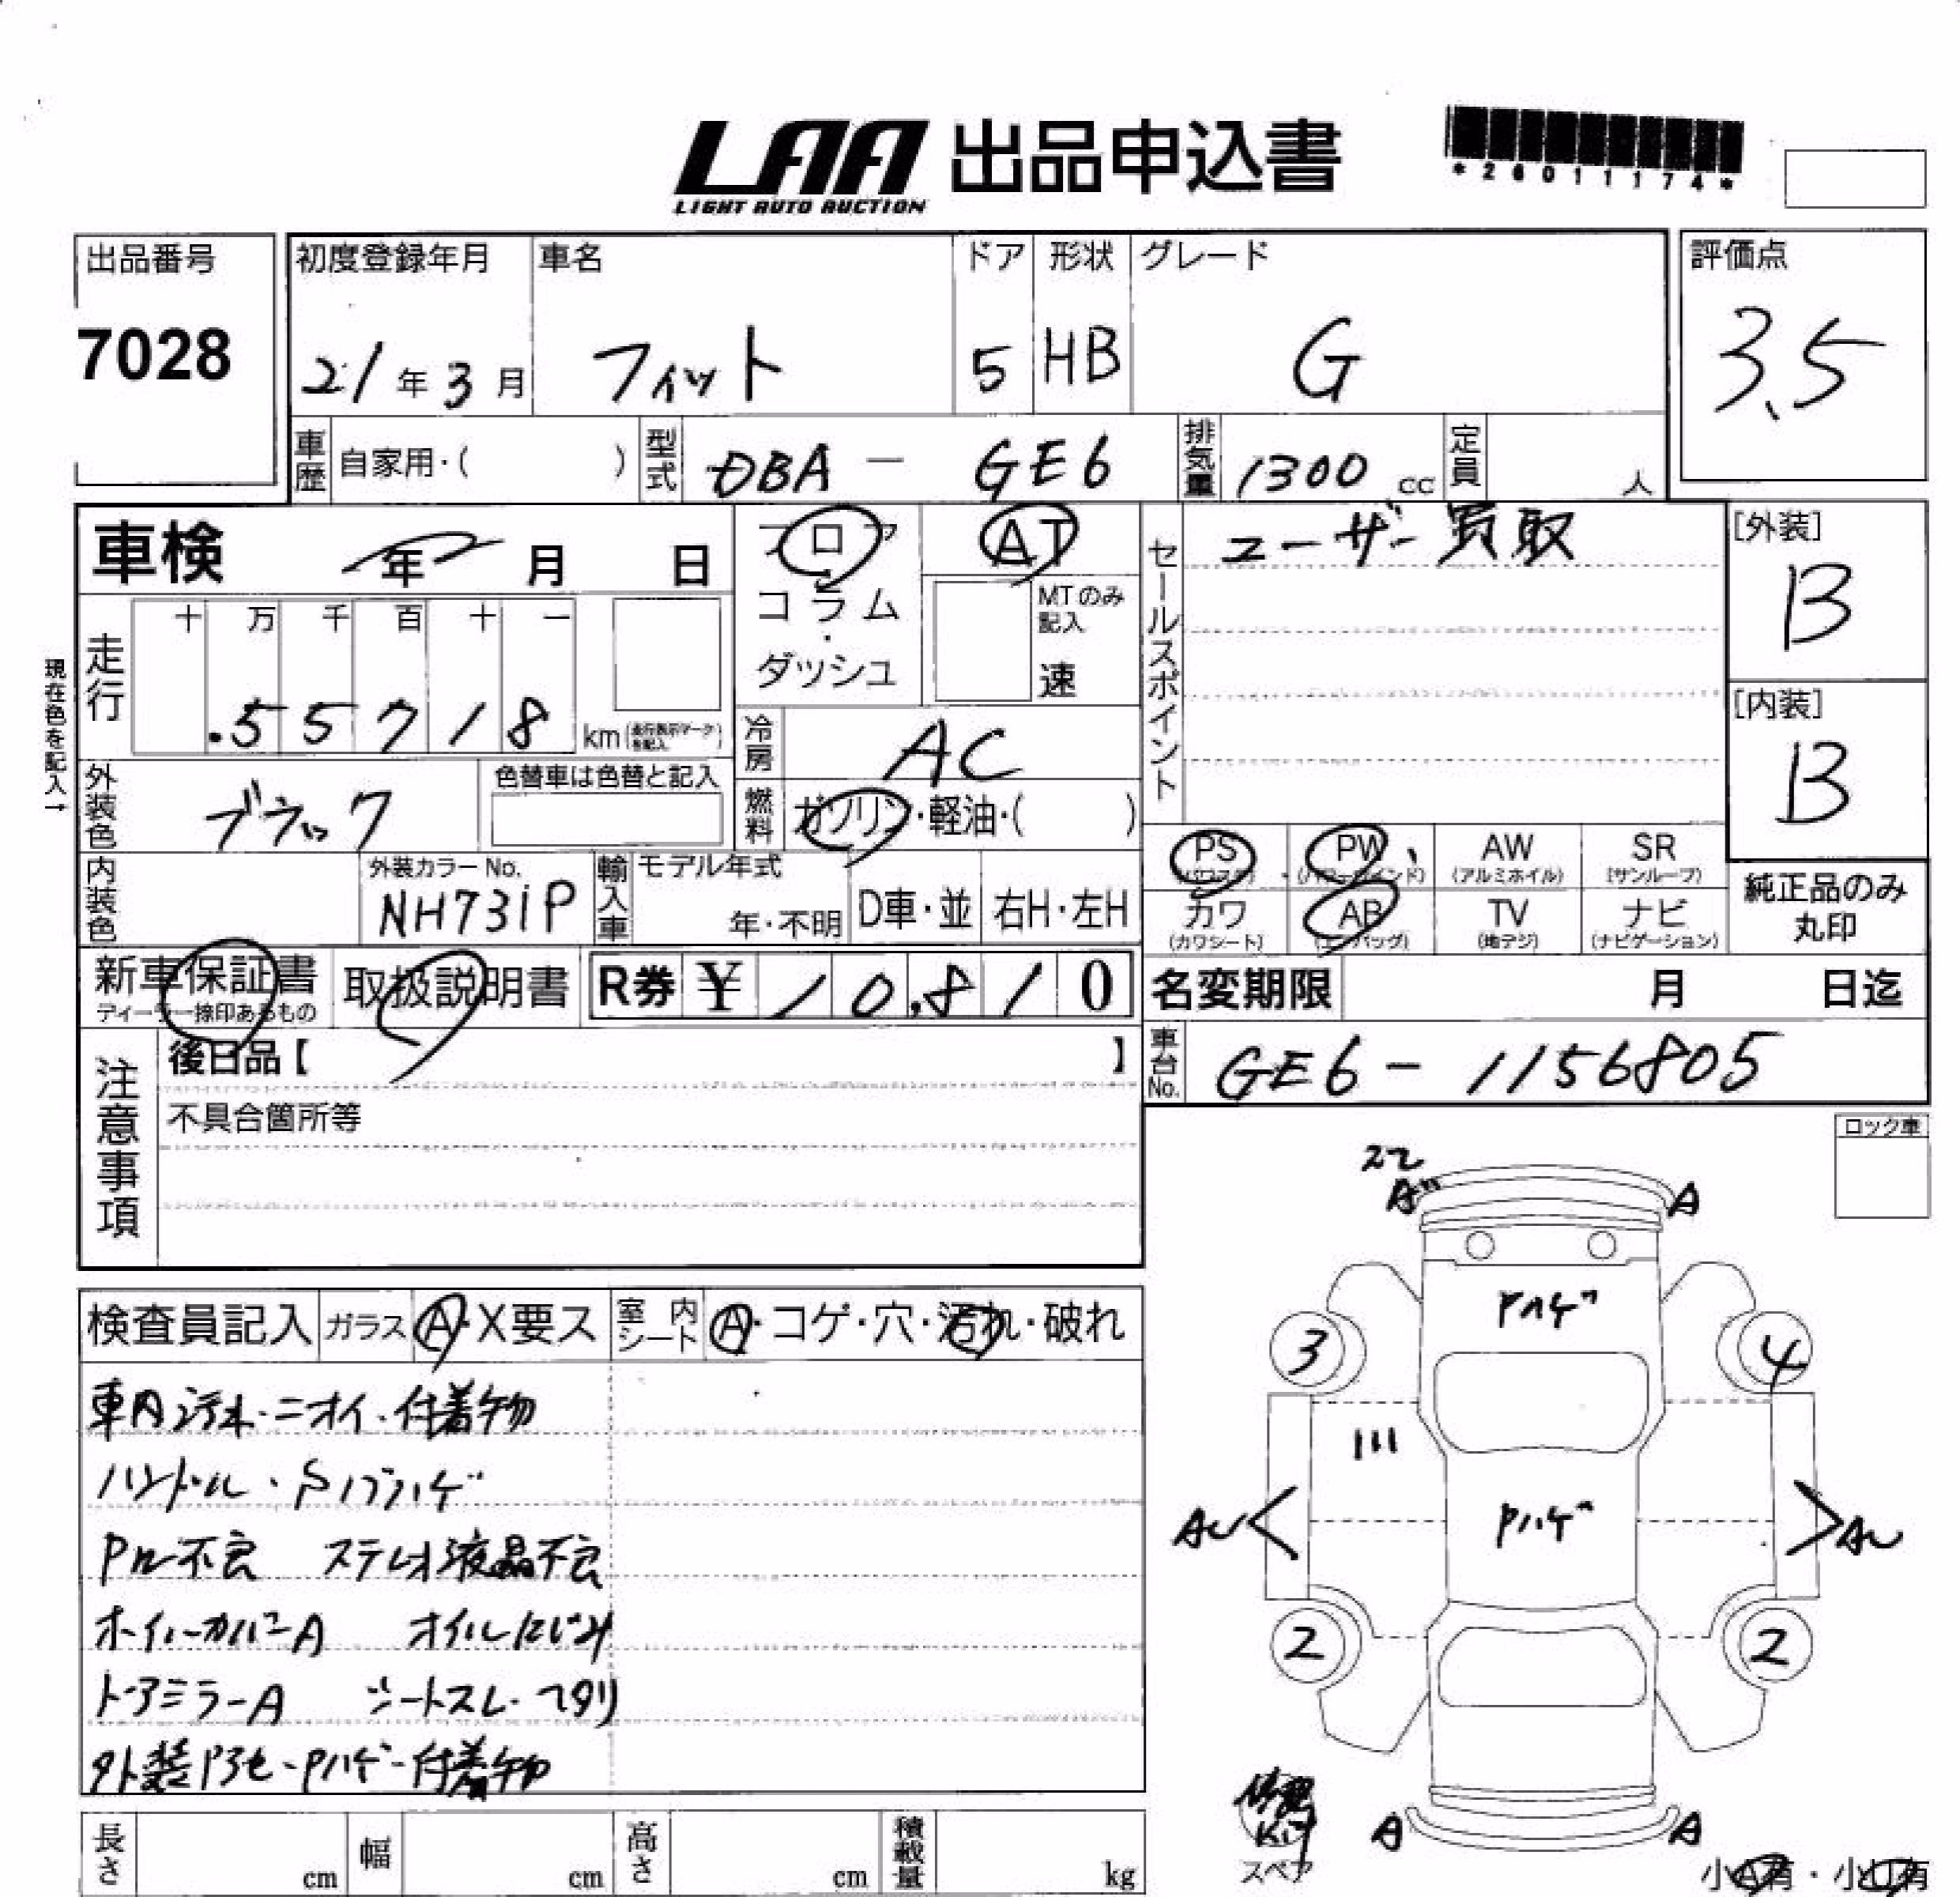 LAA 出品申込書
LIGHT AUTO AUCTION
*26011174*
出品番号
7028
初度登録年月
21年3月
車名
フィット
ドア
5
形状
HB
グレード
G
評価点
3.5
車歴 自家用・( )
型式 DBA - GE6
排気量 1300 cc
定員 人
車検 年 月 日
フロア
コラム
・
ダッシュ
AT
MTのみ
記入
速
セールスポイント
ユーザー買取
[外装]
B
[内装]
B
現在色を記入→
走行
十 万 千 百 十 一
.55718 km (走行表示マークを記入)
冷房 AC
燃料 ガソリン・軽油・( )
外装色 ブラック
色替車は色替と記入
内装色
外装カラーNo.
NH731P
輸入車
モデル年式
年・不明
D車・並
右H・左H
PS (パワステ)
PW (パワーウインド)
AW (アルミホイル)
SR (サンルーフ)
カワ (カワシート)
AB (エアバッグ)
TV (地デジ)
ナビ (ナビゲーション)
純正品のみ
丸印
新車保証書
ディーラー捺印あるもの
取扱説明書
R券 ¥10.810
名変期限 月 日迄
車台No. GE6-1156805
注意事項
後日品【 】
不具合箇所等
ロック車
検査員記入 ガラス A・X要ス
室内シート A・コゲ・穴・汚れ・破れ
車内汚れ・ニオイ・付着物
ハンドル・Sノブハゲ
不良 ステレオ液晶不良
ホイールカバーA オイルにじみ
ドアミラーA シートスレ・ヘタリ
外装 Pハゲ・付着物
A A
Pハゲ
3 4
Pハゲ
AU AU
2 2
A A
修理
Kit
スペア
小A有・小U有
長さ cm
幅 cm
高さ cm
積載量 kg